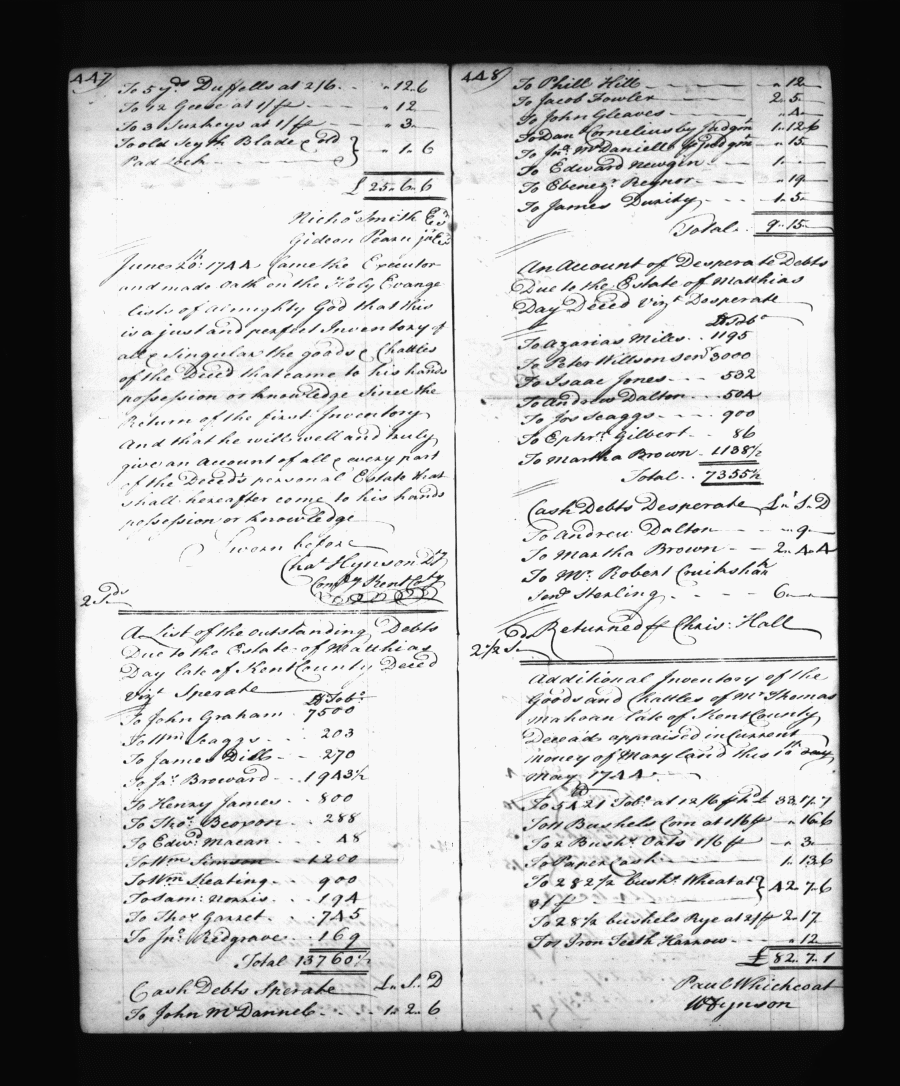 447)
To 5 yds Duffells at 2/6 - - " 12 6
To 12 Geese at 1/ - - " 12
To 3 Turkeys at 1/ - - " 3
To old Scyth Blade & old }
Pad Lock - - } " 1 " 6
£ 25 " 6 " 6
Nicho. Smith
Gideon Pearce
June 20th: 1744 Came the Executor
and made Oath on the Holy Evange
lists of Almighty God that this
is a just and perfect Inventory of
all & Singular the goods & Chattles
of the Deced that came to his hands
possession or knowledge Since the
Return of the first Inventory
And that he will well and truly
give an Account of all & every part
of the Deced's personal Estate that
shall hereafter come to his hands
possession or knowledge
Sworn before
Chas Hynson Dy
Comry Kent Coty
2 Sds
A List of the outstanding Debts
Due to the Estate of Matthias
Day late of Kent County Deced
Vizt Sperate
lb Tobo
To John Graham - 7500
To Wm Scaggs - - 203
To James Dill - - 270
To Jas. Broward - - 1943½
To Henry James - - 800
To Thos. Bexon - - 288
To Edwd Macan - - 48
To Wm Simson - - 1200
To Wm Keating - - 900
To Sam: Norris - - 194
To Thos. Garret - - 745
To Jno. Redgrave - - 169
Total 13760½
Cash Debts Sperate £ " S " D
To John McDannel - - 1 " 2 " 6
448)
To Phill Hill - - " 12
To Jacob Fowler - - 2 " 5
To John Gleaves - - " 4
To Dan Cornelius by Judgmt 1 " 12 " 6
To Jno. McDanielle by Judgmt " 15
To Edward Newgin - - 1 "
To Ebenezr. Reynor - - " 19
To James Durity - - 1 " 5
Total - 9 " 15
An Account of Desperate Debts
Due to the Estate of Matthias
Day Deced Vizt. Desperate
lb Tobo
To Azarias Miles - - 1195
To Peter Willson Senr 3000
To Isaac Jones - - 532
To Andrew Dalton - - 504
To Jos Scaggs - - 900
To Ephrm. Gilbert - - 86
To Martha Brown - 1138½
Total - - 7355½
Cash Debts Desperate £ " S " D
To Andrew Dalton - - " 9
To Martha Brown - - 2 " 4 " 4
To Mr. Robert Cruikshank
Senr Sterling - - 6
Returned Chris: Hall
2½ Sds
Additional Inventory of the
Goods and Chattles of Mr Thomas
Mahoan late of Kent County
Deceas'd appraised in Current
money of Maryland this 10th day
May 1744
To 5421 lb Tobo. at 12/6 33 " 17 " 7
To 11 Bushels Corn at 1/6 - " 16 " 6
To 2 Bushs. Oats 1/6 - " 3
To Paper Cash - - 1 " 13 " 6
To 282½ bushs. Wheat at } 42 " 7 " 6
3/
To 28½ bushels Rye at 2/ 2 " 17
To 1 Iron Teeth Harrow - - " 12
£ 82 " 7 " 1
Paul Whichcoat
W Hynson